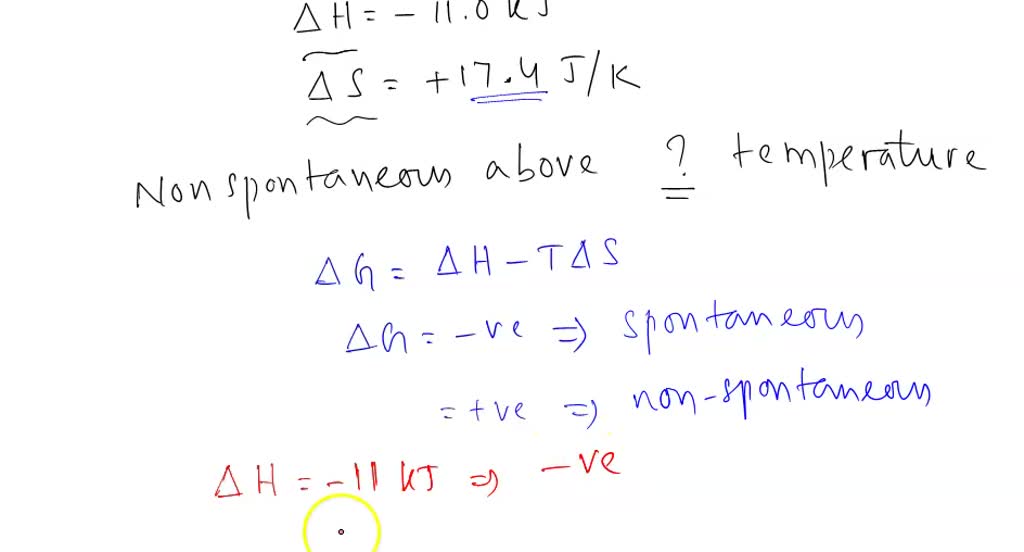 ΔH = - 11.0 kJ
ΔS = +17.4 J/K
Nonspontaneous above ? temperature
ΔG = ΔH - TΔS
ΔG = -ve ⇒ spontaneous
= +ve ⇒ non-spontaneous
ΔH = -11 kJ ⇒ -ve